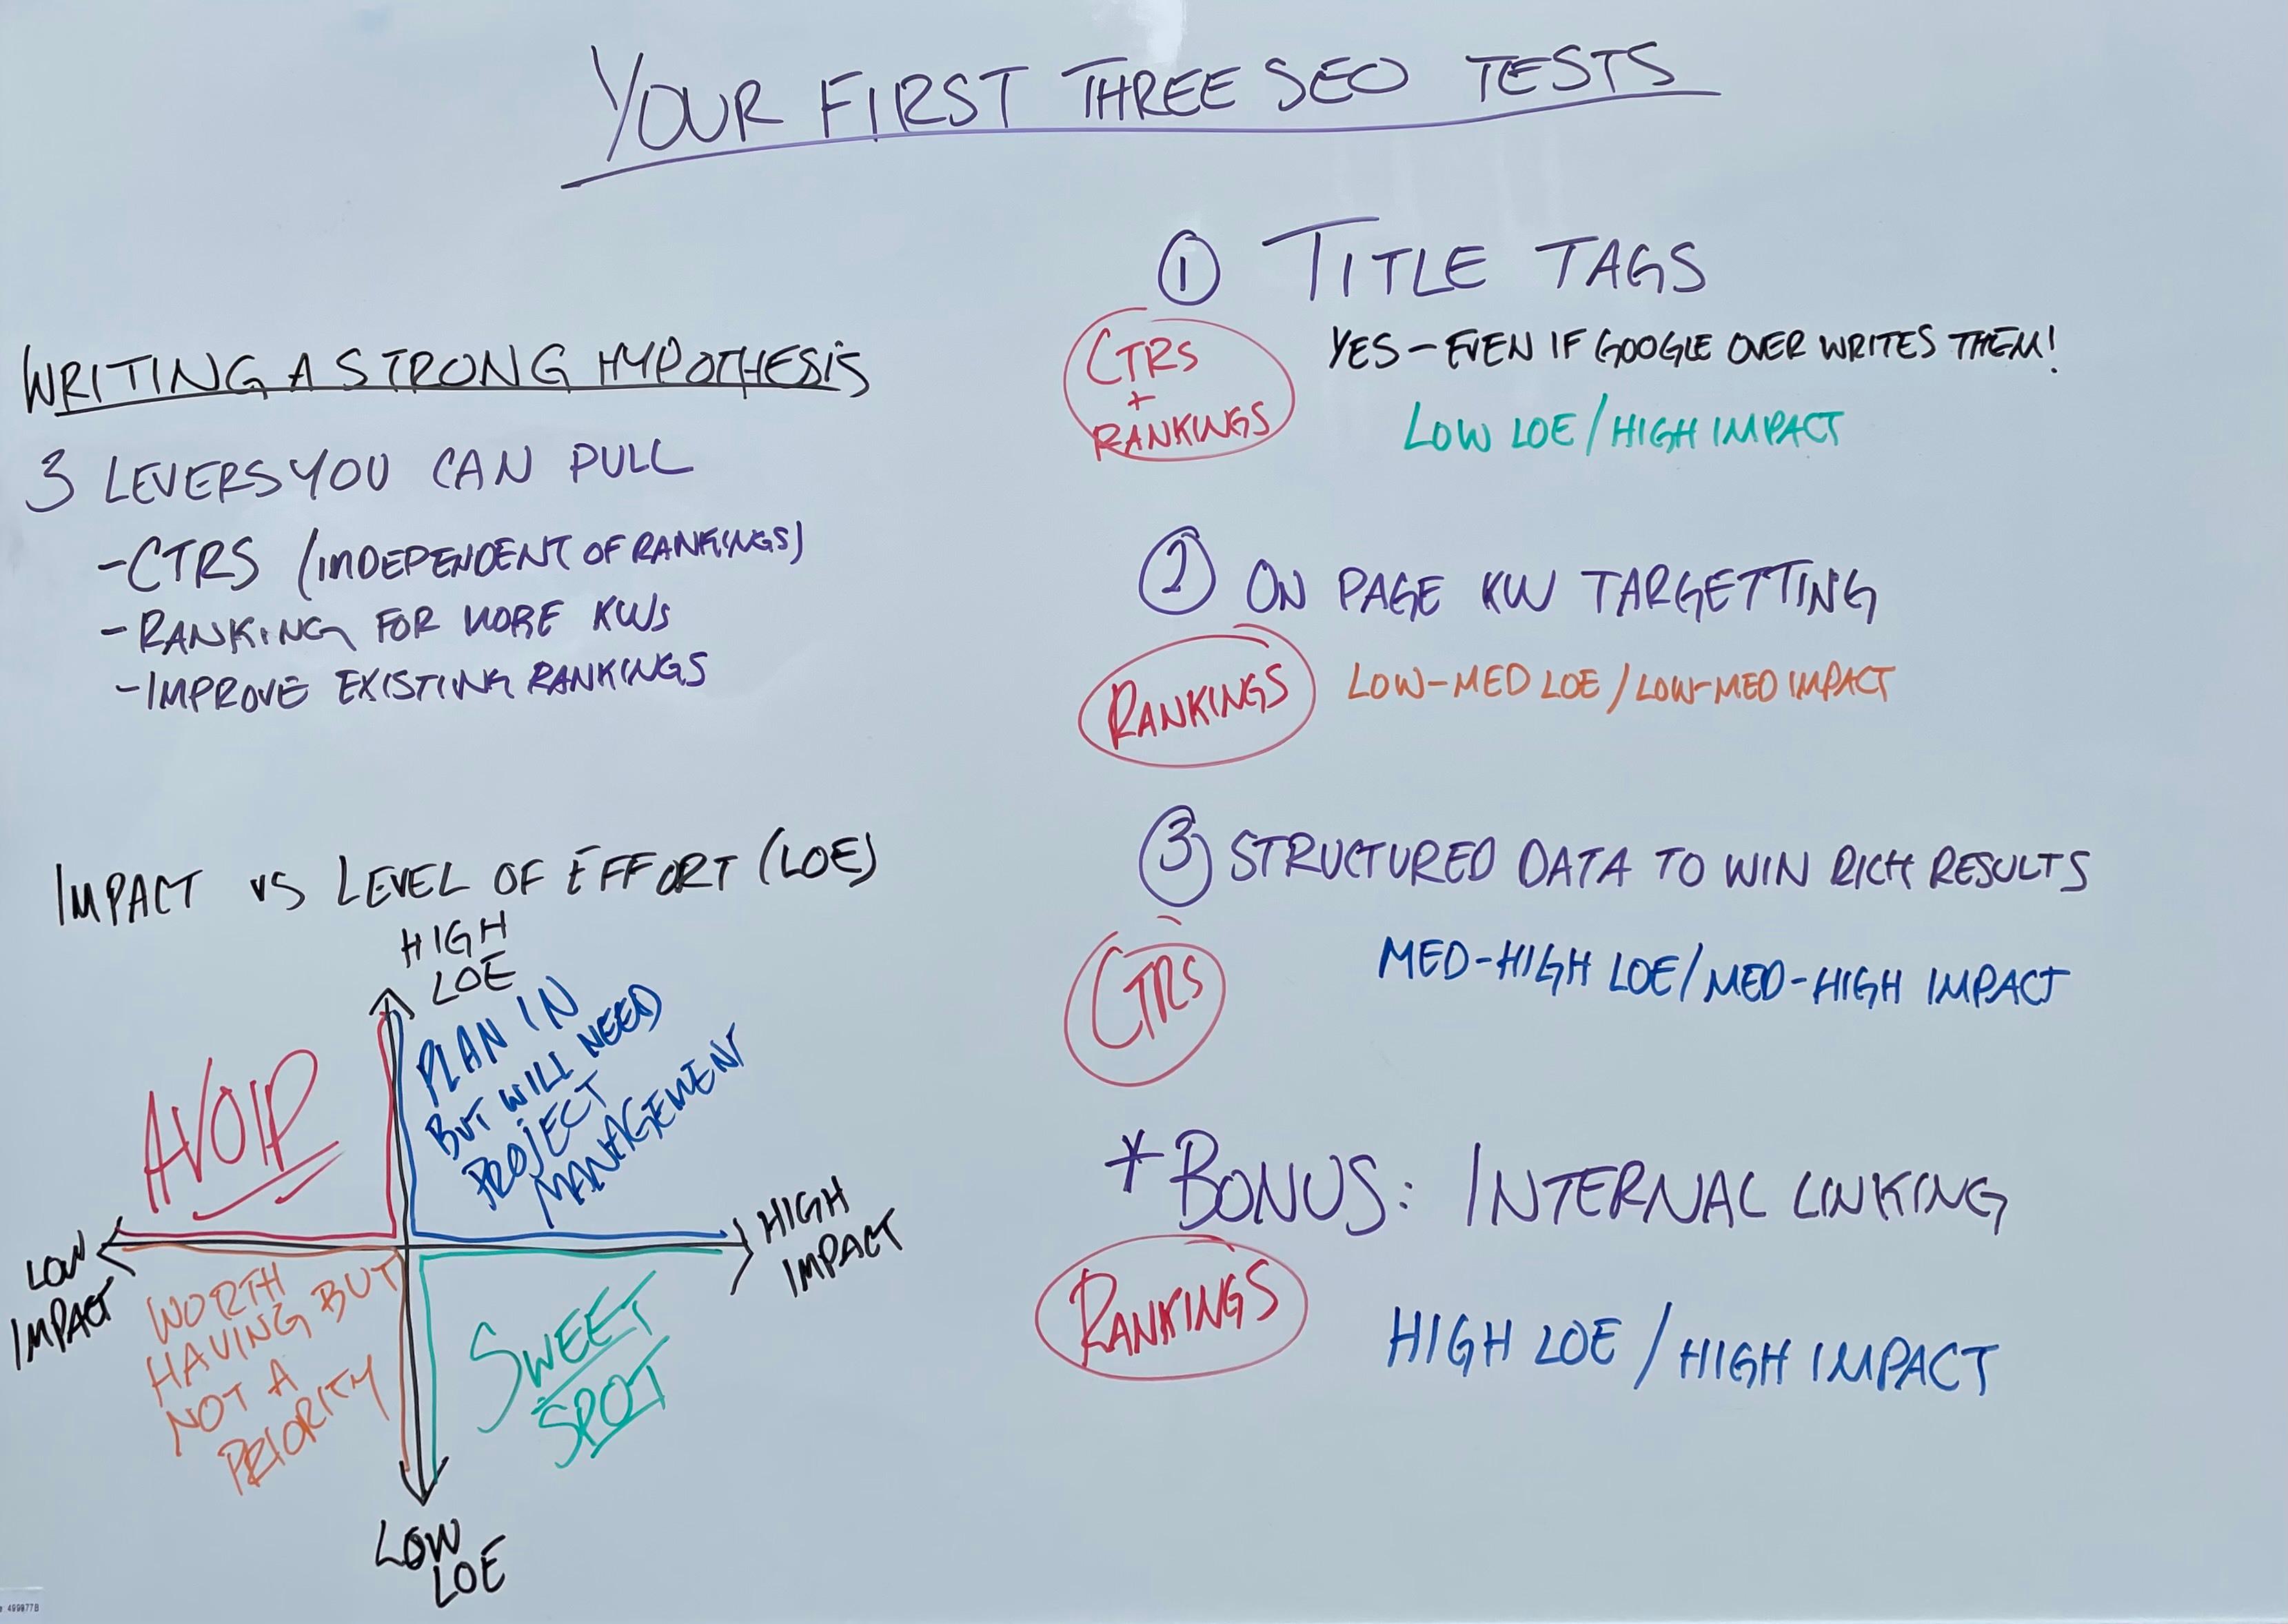 YOUR FIRST THREE SEO TESTS
WRITING A STRONG HYPOTHESIS
3 LEVERS YOU CAN PULL
-CTRS (INDEPENDENT OF RANKINGS)
-RANKING FOR MORE KWS
-IMPROVE EXISTING RANKINGS
IMPACT VS LEVEL OF EFFORT (LOE)
HIGH
LOE
AVOID
PLAN IN
BUT WILL NEED
PROJECT
MANAGEMENT
LOW
IMPACT
HIGH
IMPACT
WORTH
HAVING BUT
NOT A
PRIORITY
SWEET
SPOT
LOW
LOE
1 TITLE TAGS
CTRS
+
RANKINGS
YES - EVEN IF GOOGLE OVER WRITES THEM!
LOW LOE / HIGH IMPACT
2 ON PAGE KW TARGETTING
RANKINGS
LOW-MED LOE / LOW-MED IMPACT
3 STRUCTURED DATA TO WIN RICH RESULTS
CTRS
MED-HIGH LOE / MED-HIGH IMPACT
*BONUS: INTERNAL LINKING
RANKINGS
HIGH LOE / HIGH IMPACT